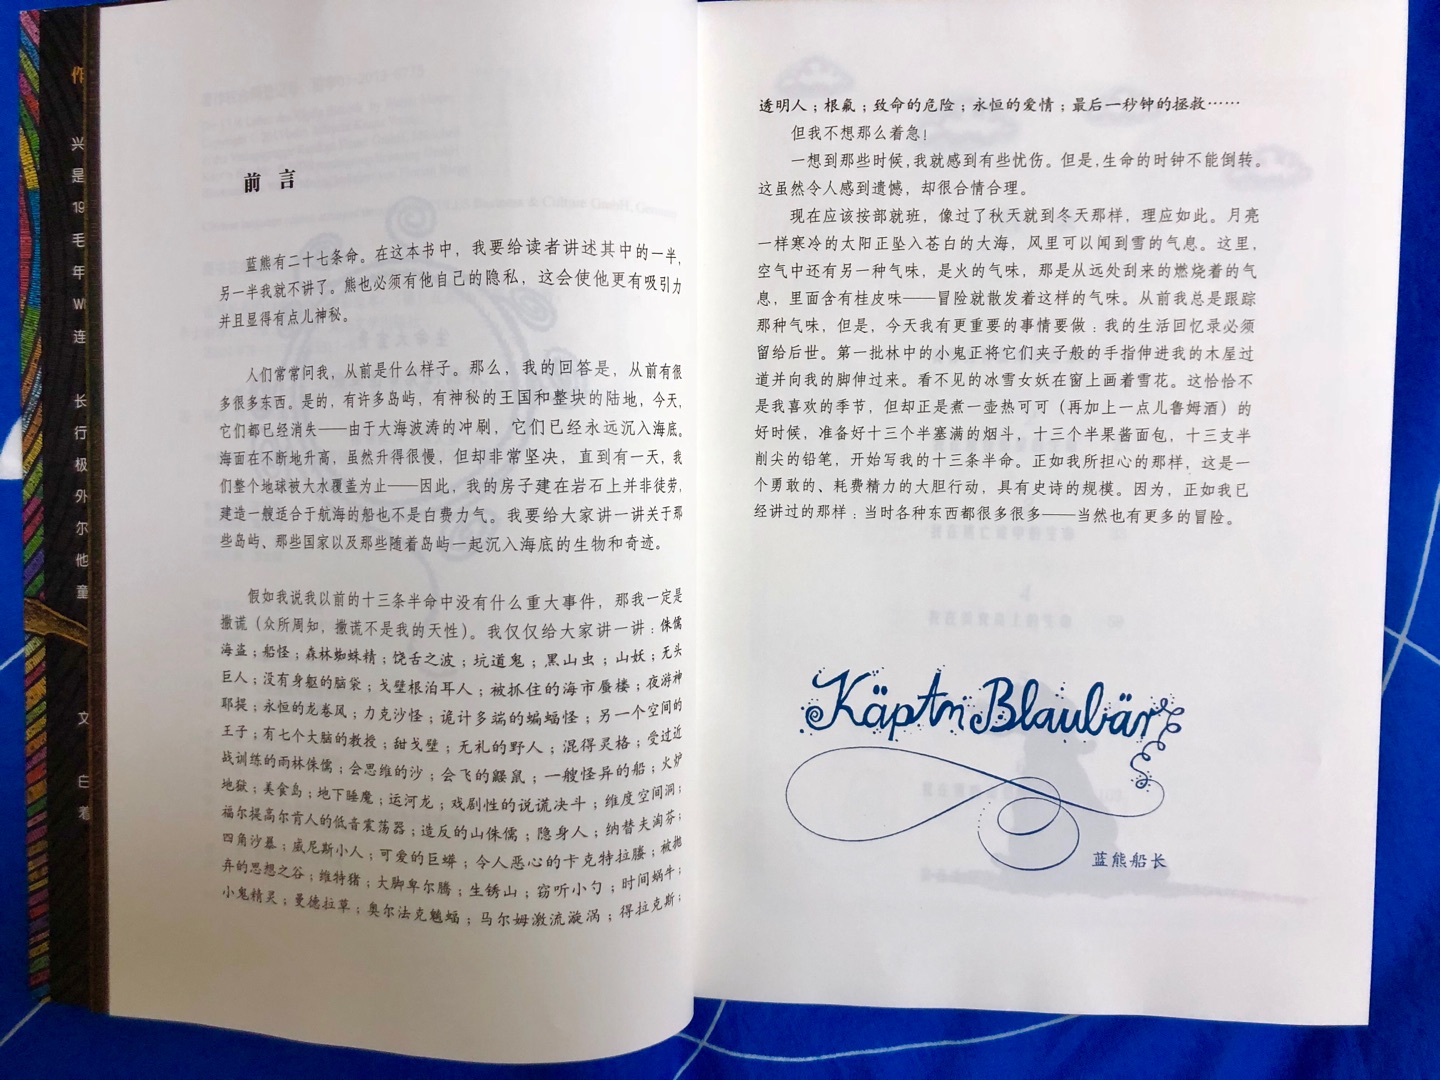 作
兴
是
19
毛
年
W
连
长
行
极
外
尔
他
童
文
白
着
前 言
蓝熊有二十七条命。在这本书中，我要给读者讲述其中的一半，
另一半我就不讲了。熊也必须有他自己的隐私，这会使他更有吸引力
并且显得有点儿神秘。
人们常常问我，从前是什么样子。那么，我的回答是，从前有很
多很多东西。是的，有许多岛屿，有神秘的王国和整块的陆地，今天，
它们都已经消失——由于大海波涛的冲刷，它们已经永远沉入海底。
海面在不断地升高，虽然升得很慢，但却非常坚决，直到有一天，我
们整个地球被大水覆盖为止——因此，我的房子建在岩石上并非徒劳，
建造一艘适合于航海的船也不是白费力气。我要给大家讲一讲关于那
些岛屿、那些国家以及那些随着岛屿一起沉入海底的生物和奇迹。
假如我说我以前的十三条半命中没有什么重大事件，那我一定是
撒谎（众所周知，撒谎不是我的天性）。我仅仅给大家讲一讲：侏儒
海盗；船怪；森林蜘蛛精；饶舌之波；坑道鬼；黑山虫；山妖；无头
巨人；没有身躯的脑袋；戈壁根泊耳人；被抓住的海市蜃楼；夜游神
耶提；永恒的龙卷风；力克沙怪；诡计多端的蝙蝠怪；另一个空间的
王子；有七个大脑的教授；甜戈壁；无礼的野人；混得灵格；受过近
战训练的雨林侏儒；会思维的沙；会飞的鼹鼠；一艘怪异的船；火炉
地狱；美食岛；地下睡魔；运河龙；戏剧性的说谎决斗；维度空间洞；
福尔提高尔肯人的低音震荡器；造反的山侏儒；隐身人；纳替夫淘芬；
四角沙暴；威尼斯小人；可爱的巨蟒；令人恶心的卡克特拉腰；被抛
弃的思想之谷；维特猪；大脚卑尔腾；生锈山；窃听小勺；时间蜗牛；
小鬼精灵；曼德拉草；奥尔法克魑蝠；马尔姆激流漩涡；得拉克斯；
透明人；根氟；致命的危险；永恒的爱情；最后一秒钟的拯救……
但我不想那么着急！
一想到那些时候，我就感到有些忧伤。但是，生命的时钟不能倒转。
这虽然令人感到遗憾，却很合情合理。
现在应该按部就班，像过了秋天就到冬天那样，理应如此。月亮
一样寒冷的太阳正坠入苍白的大海，风里可以闻到雪的气息。这里，
空气中还有另一种气味，是火的气味，那是从远处刮来的燃烧着的气
息，里面含有桂皮味——冒险就散发着这样的气味。从前我总是跟踪
那种气味，但是，今天我有更重要的事情要做：我的生活回忆录必须
留给后世。第一批林中的小鬼正将它们夹子般的手指伸进我的木屋过
道并向我的脚伸过来。看不见的冰雪女妖在窗上画着雪花。这恰恰不
是我喜欢的季节，但却正是煮一壶热可可（再加上一点儿鲁姆酒）的
好时候，准备好十三个半塞满的烟斗，十三个半果酱面包，十三支半
削尖的铅笔，开始写我的十三条半命。正如我所担心的那样，这是一
个勇敢的、耗费精力的大胆行动，具有史诗的规模。因为，正如我已
经讲过的那样：当时各种东西都很多很多——当然也有更多的冒险。
Käptn Blaubär
蓝熊船长